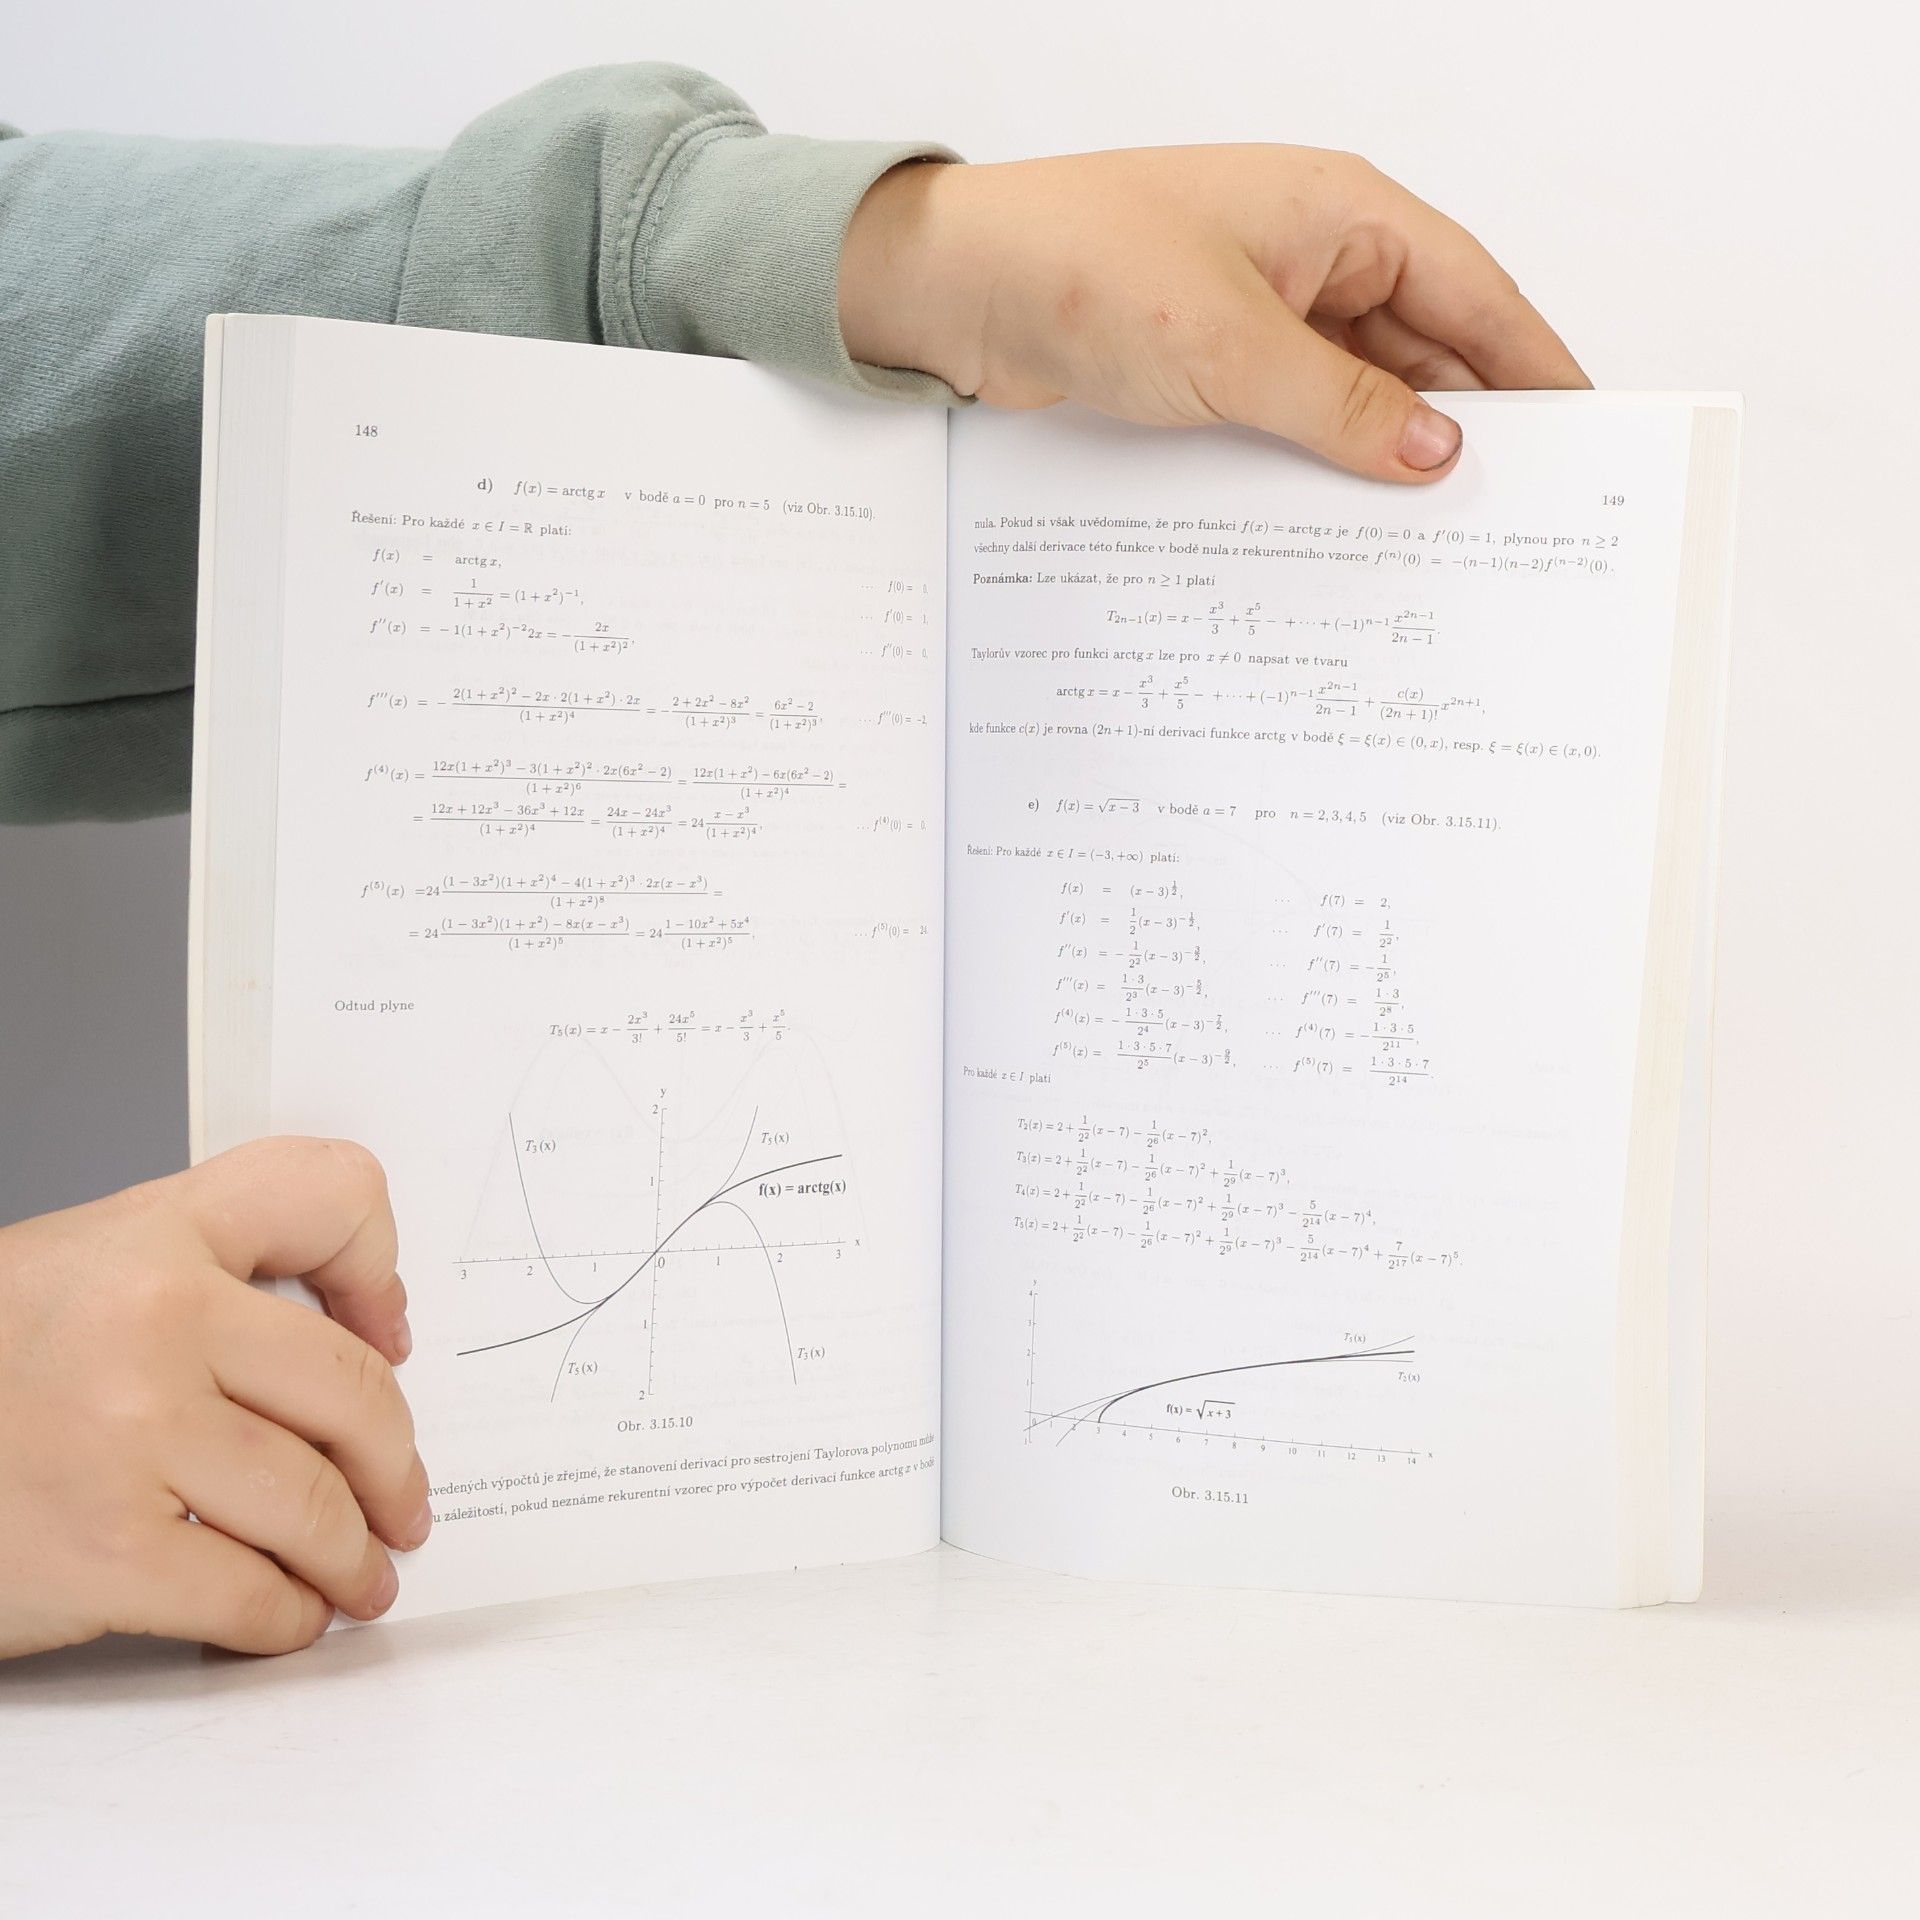 148
d) f(x) = arctg x v bodě a = 0 pro n = 5 (viz Obr. 3.15.10).
Řešení: Pro každé x ∈ I = ℝ platí:
f(x) = arctg x, ⋯ f(0) = 0,
f′(x) = 1/(1 + x²) = (1 + x²)⁻¹, ⋯ f′(0) = 1,
f″(x) = −1(1 + x²)⁻²2x = −2x/(1 + x²)², ⋯ f″(0) = 0,
f‴(x) = −(2(1 + x²)² − 2x · 2(1 + x²) · 2x)/(1 + x²)⁴ = −(2 + 2x² − 8x²)/(1 + x²)³ = (6x² − 2)/(1 + x²)³, ⋯ f‴(0) = −2,
f⁽⁴⁾(x) = (12x(1 + x²)³ − 3(1 + x²)² · 2x(6x² − 2))/(1 + x²)⁶ = (12x(1 + x²) − 6x(6x² − 2))/(1 + x²)⁴ =
= (12x + 12x³ − 36x³ + 12x)/(1 + x²)⁴ = (24x − 24x³)/(1 + x²)⁴ = 24 (x − x³)/(1 + x²)⁴, … f⁽⁴⁾(0) = 0,
f⁽⁵⁾(x) =24 ((1 − 3x²)(1 + x²)⁴ − 4(1 + x²)³ · 2x(x − x³))/(1 + x²)⁸ =
= 24 ((1 − 3x²)(1 + x²) − 8x(x − x³))/(1 + x²)⁵ = 24 (1 − 10x² + 5x⁴)/(1 + x²)⁵, … f⁽⁵⁾(0) = 24
Odtud plyne
T₅(x) = x − 2x³/3! + 24x⁵/5! = x − x³/3 + x⁵/5.
y
2
T₃(x) T₅(x)
1
f(x) = arctg(x)
3 2 1 0 1 2 3 x
1
T₅(x) T₃(x)
2
Obr. 3.15.10
vedených výpočtů je zřejmé, že stanovení derivací pro sestrojení Taylorova polynomu může
u záležitostí, pokud neznáme rekurentní vzorec pro výpočet derivací funkce arctg x v bodě
149
nula. Pokud si však uvědomíme, že pro funkci f(x) = arctg x je f(0) = 0 a f′(0) = 1, plynou pro n ≥ 2
všechny další derivace této funkce v bodě nula z rekurentního vzorce f⁽ⁿ⁾(0) = −(n−1)(n−2)f⁽ⁿ⁻²⁾(0).
Poznámka: Lze ukázat, že pro n ≥ 1 platí
T₂ₙ₋₁(x) = x − x³/3 + x⁵/5 − + ⋯ + (−1)ⁿ⁻¹ x²ⁿ⁻¹/(2n − 1).
Taylorův vzorec pro funkci arctg x lze pro x ≠ 0 napsat ve tvaru
arctg x = x − x³/3 + x⁵/5 − + ⋯ + (−1)ⁿ⁻¹ x²ⁿ⁻¹/(2n − 1) + c(x)/(2n + 1)! x²ⁿ⁺¹,
kde funkce c(x) je rovna (2n + 1)-ní derivaci funkce arctg v bodě ξ = ξ(x) ∈ (0, x), resp. ξ = ξ(x) ∈ (x, 0).
e) f(x) = √(x − 3) v bodě a = 7 pro n = 2, 3, 4, 5 (viz Obr. 3.15.11).
Řešení: Pro každé x ∈ I = (−3, +∞) platí:
f(x) = (x − 3)^(1/2), ⋯ f(7) = 2,
f′(x) = 1/2 (x − 3)^(−1/2), ⋯ f′(7) = 1/2²,
f″(x) = −1/2² (x − 3)^(−3/2), ⋯ f″(7) = −1/2⁵,
f‴(x) = (1 · 3)/2³ (x − 3)^(−5/2), ⋯ f‴(7) = (1 · 3)/2⁸,
f⁽⁴⁾(x) = −(1 · 3 · 5)/2⁴ (x − 3)^(−7/2), ⋯ f⁽⁴⁾(7) = −(1 · 3 · 5)/2¹¹,
f⁽⁵⁾(x) = (1 · 3 · 5 · 7)/2⁵ (x − 3)^(−9/2), ⋯ f⁽⁵⁾(7) = (1 · 3 · 5 · 7)/2¹⁴.
Pro každé x ∈ I platí
T₂(x) = 2 + 1/2² (x − 7) − 1/2⁶ (x − 7)²,
T₃(x) = 2 + 1/2² (x − 7) − 1/2⁶ (x − 7)² + 1/2⁹ (x − 7)³,
T₄(x) = 2 + 1/2² (x − 7) − 1/2⁶ (x − 7)² + 1/2⁹ (x − 7)³ − 5/2¹⁴ (x − 7)⁴,
T₅(x) = 2 + 1/2² (x − 7) − 1/2⁶ (x − 7)² + 1/2⁹ (x − 7)³ − 5/2¹⁴ (x − 7)⁴ + 7/2¹⁷ (x − 7)⁵.
y
4
3
T₅(x)
2
T₂(x)
1
f(x) = √(x + 3)
0 1 2 3 4 5 6 7 8 9 10 11 12 13 14 x
1
Obr. 3.15.11